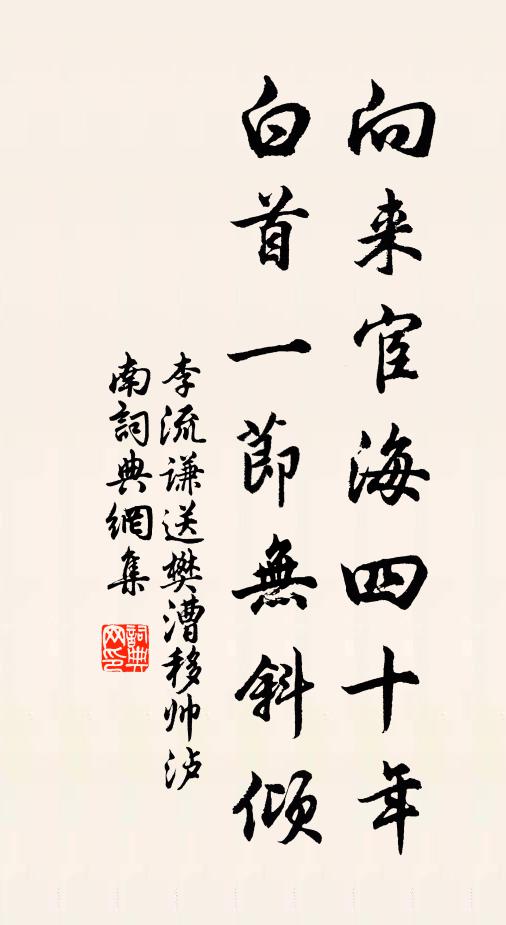 向来宦海四十年
白首一節無斜傾
李流谦送樊漕移帅泸
南詞典網集
詞典網印